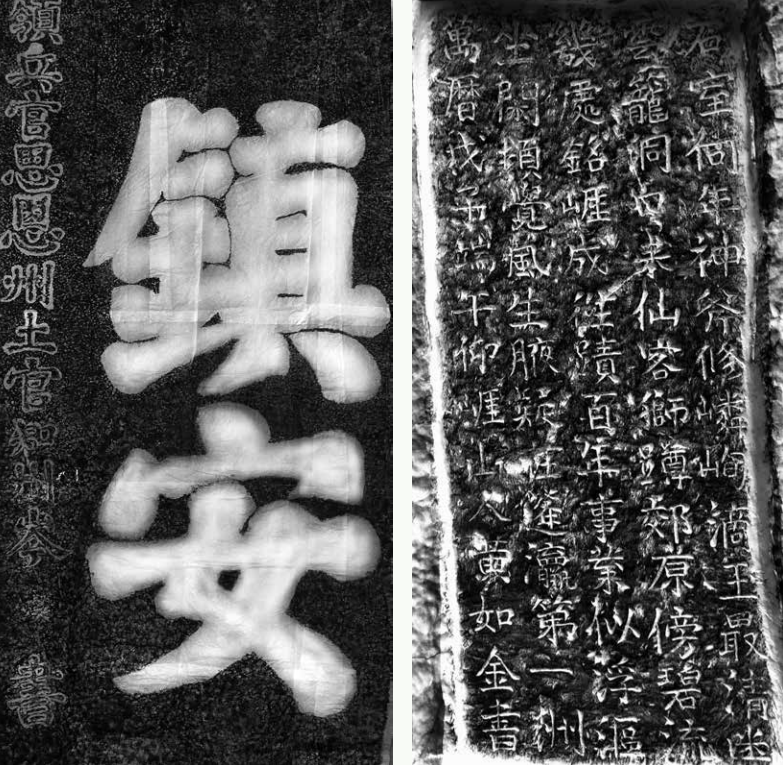 鎮安
領兵官思恩州土官知州岑書
石室何年神斧修嶙峋滴玉最清幽
雲籠洞口来仙客獅蹲郊原傍碧流
幾處銘崕成往蹟百年事業似浮漚
坐閑頓覺風生腋疑在蓬瀛第一洲
萬曆戊子端午仰崕山人黄如金書